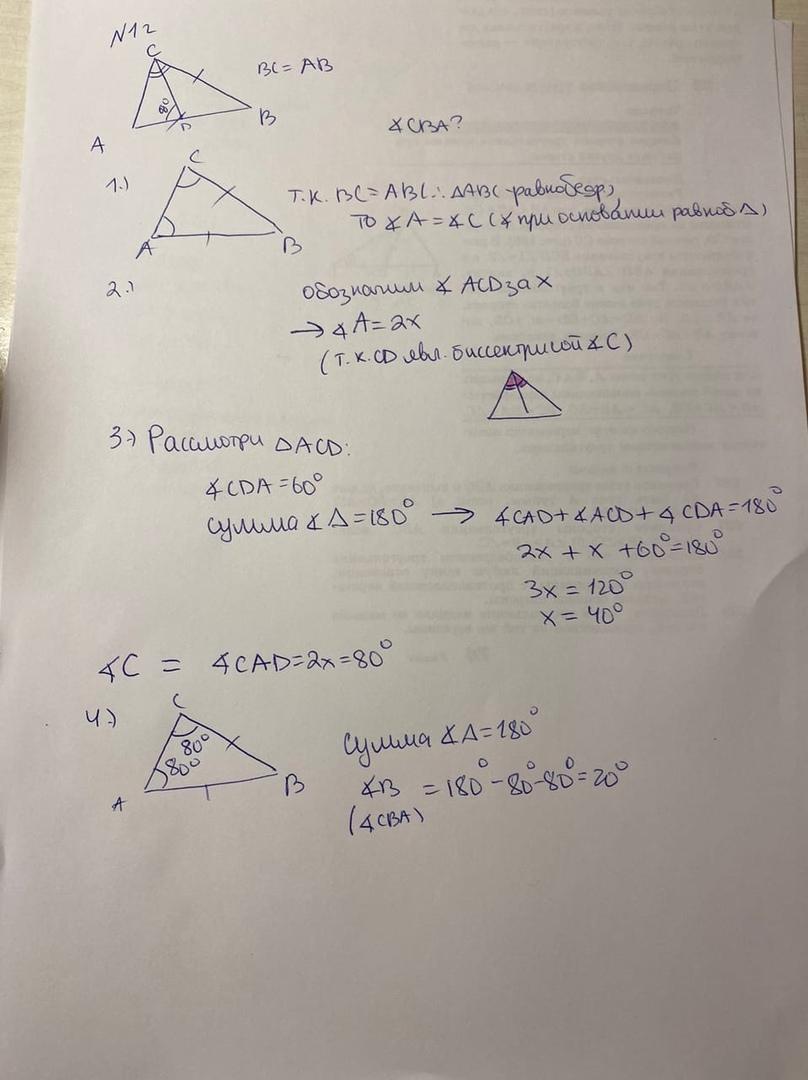 N12
C
BC = AB
60°
D
B
A
∢CBA?
1.)
C
A
B
Т.К. BC = ABC ∴ ΔABC-равнобедр,
ТО ∢A = ∢C (∢ при основании равноб Δ)
2.)
обозначим ∢ ACD за X
→ ∢A = 2x
(Т.К. CD явл. биссектрисой ∢C)
3.) Рассмотри ΔACD:
∢CDA = 60°
сумма ∢ Δ = 180° → ∢CAD + ∢ACD + ∢CDA = 180°
2x + x + 60° = 180°
3x = 120°
x = 40°
∢C = ∢CAD = 2x = 80°
4.)
C
80°
80°
A
B
Сумма ∢Δ = 180°
∢B = 180° - 80° - 80° = 20°
(∢CBA)